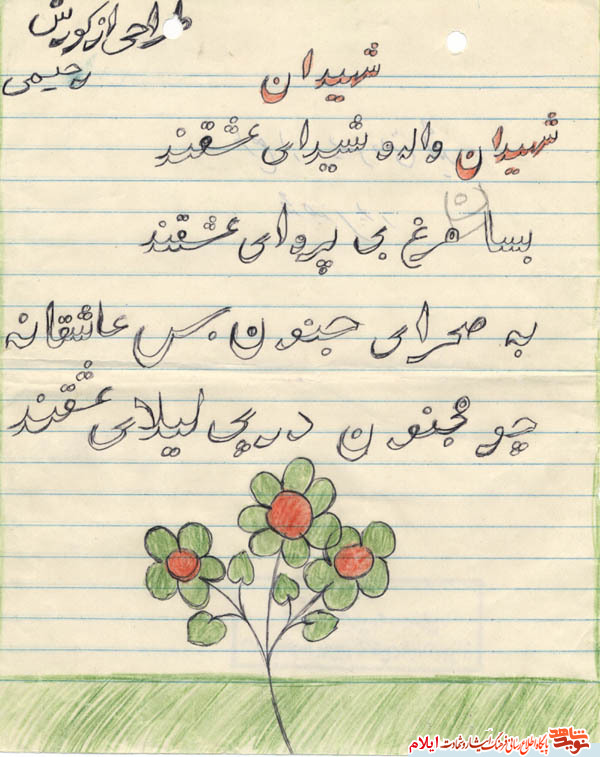 طراحی از کورش
رحیمی
شهیدان
شهیدان واله و شیدای عشقند
بسان مرغ بی پروای عشقند
به صحرای جنون بس عاشقانه
چو مجنون در پی لیلای عشقند
نوید شاهد پایگاه اطلاع رسانی فرهنگ ایثار و شهادت ایلام